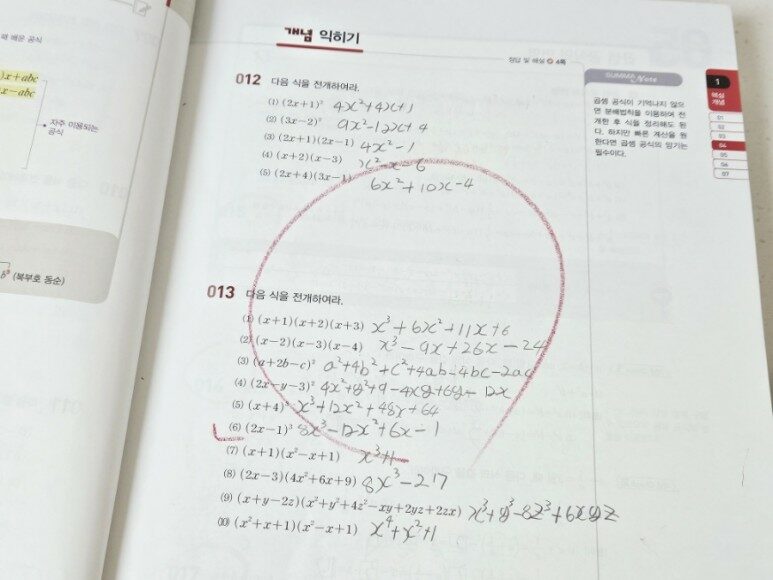 해 배운 공식
)x+abc
x-abc
자주 이용되는
공식
b³ (복부호 동순)
개념 익히기
정답 및 해설 4쪽
012 다음 식을 전개하여라.
(1) (2x+1)² 4x²+4x+1
(2) (3x-2)² 9x²-12x+4
(3) (2x+1)(2x-1) 4x²-1
(4) (x+2)(x-3) x²-x-6
(5) (2x+4)(3x-1) 6x²+10x-4
013 다음 식을 전개하여라.
(1) (x+1)(x+2)(x+3) x³+6x²+11x+6
(2) (x-2)(x-3)(x-4) x³-9x+26x-24
(3) (a+2b-c)² a²+4b²+c²+4ab-4bc-2ac
(4) (2x-y-3)² 4x²+y²+9-4xy+6y-12x
(5) (x+4)³ x³+12x²+48x+64
(6) (2x-1)³ 8x³-12x²+6x-1
(7) (x+1)(x²-x+1) x³+1
(8) (2x-3)(4x²+6x+9) 8x³-217
(9) (x+y-2z)(x²+y²+4z²-xy+2yz+2zx) x³+y³-8z³+6xyz
(10) (x²+x+1)(x²-x+1) x⁴+x²+1
SUMMA Note
곱셈 공식이 기억나지 않으
면 분배법칙을 이용하여 전
개한 후 식을 정리해도 된
다. 하지만 빠른 계산을 원
한다면 곱셈 공식의 암기는
필수이다.
1
핵심
개념
01
02
03
04
05
06
07